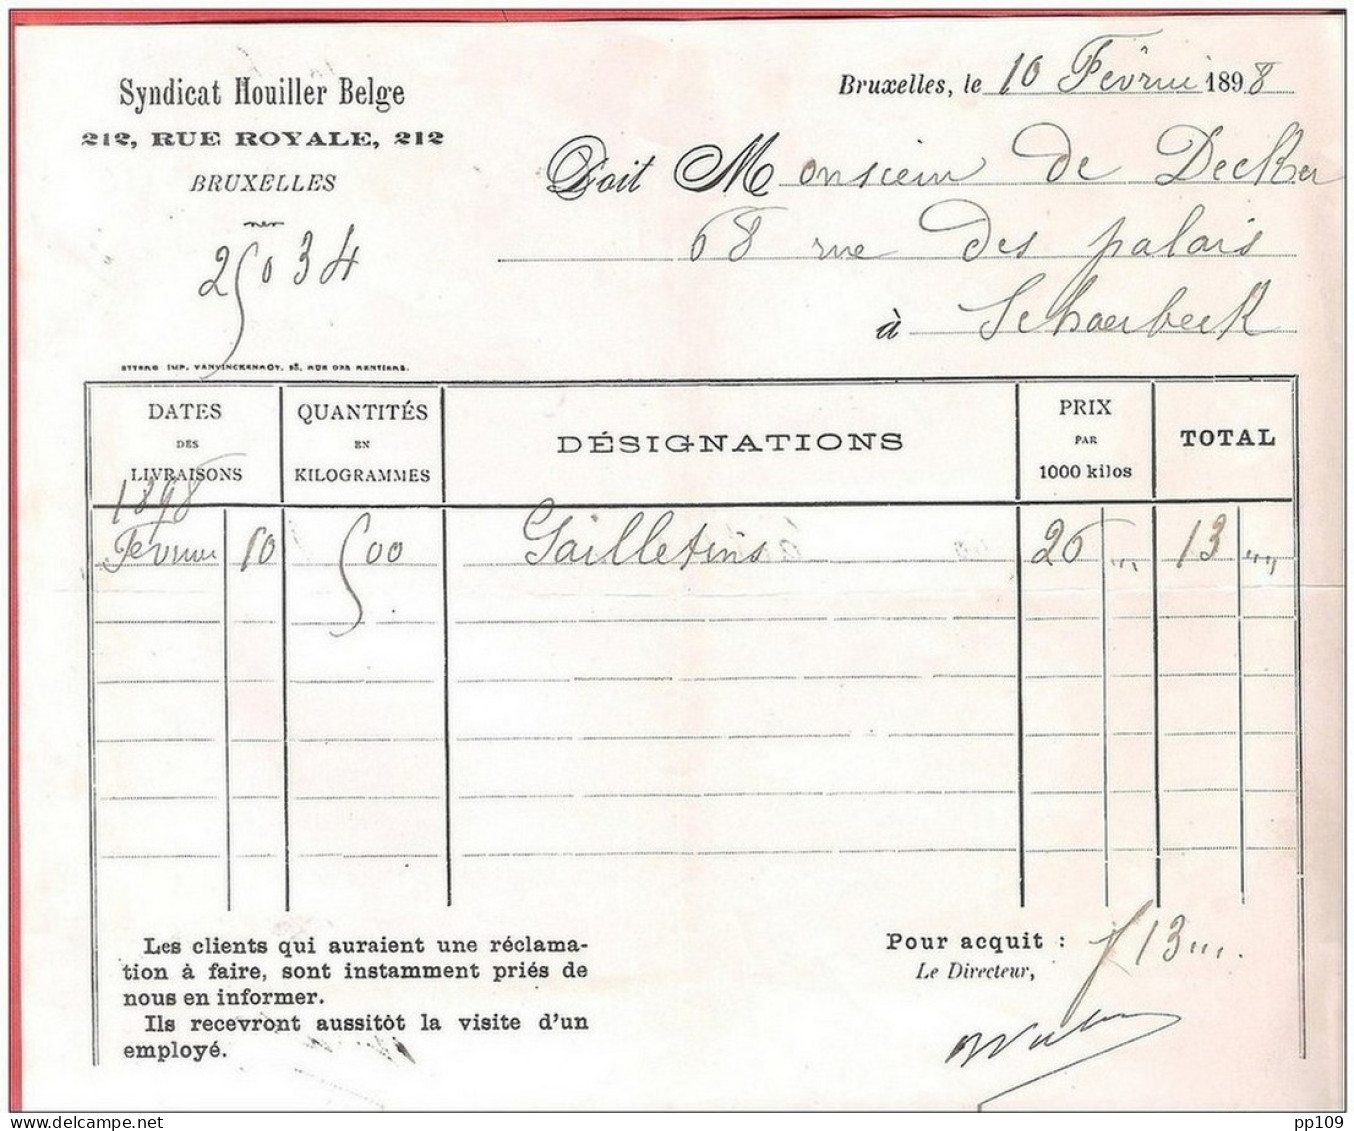 Syndicat Houiller Belge
212, RUE ROYALE, 212
BRUXELLES
25034
Bruxelles, le 10 Février 1898
Doit Monsieur de Decker
68 rue des palais
à Schaerbeek
ETTERB. IMP. VANVINCKENROY, 98, RUE DES RENTIERS.
DATES DES LIVRAISONS QUANTITÉS EN KILOGRAMMES DÉSIGNATIONS PRIX PAR 1000 kilos TOTAL
1898
Février 10 500 Gailletins 26 ,,, 13 ,,,,
Les clients qui auraient une réclama-
tion à faire, sont instamment priés de
nous en informer.
Ils recevront aussitôt la visite d'un
employé.
Pour acquit : f 13 ,,,.
Le Directeur,
pp109